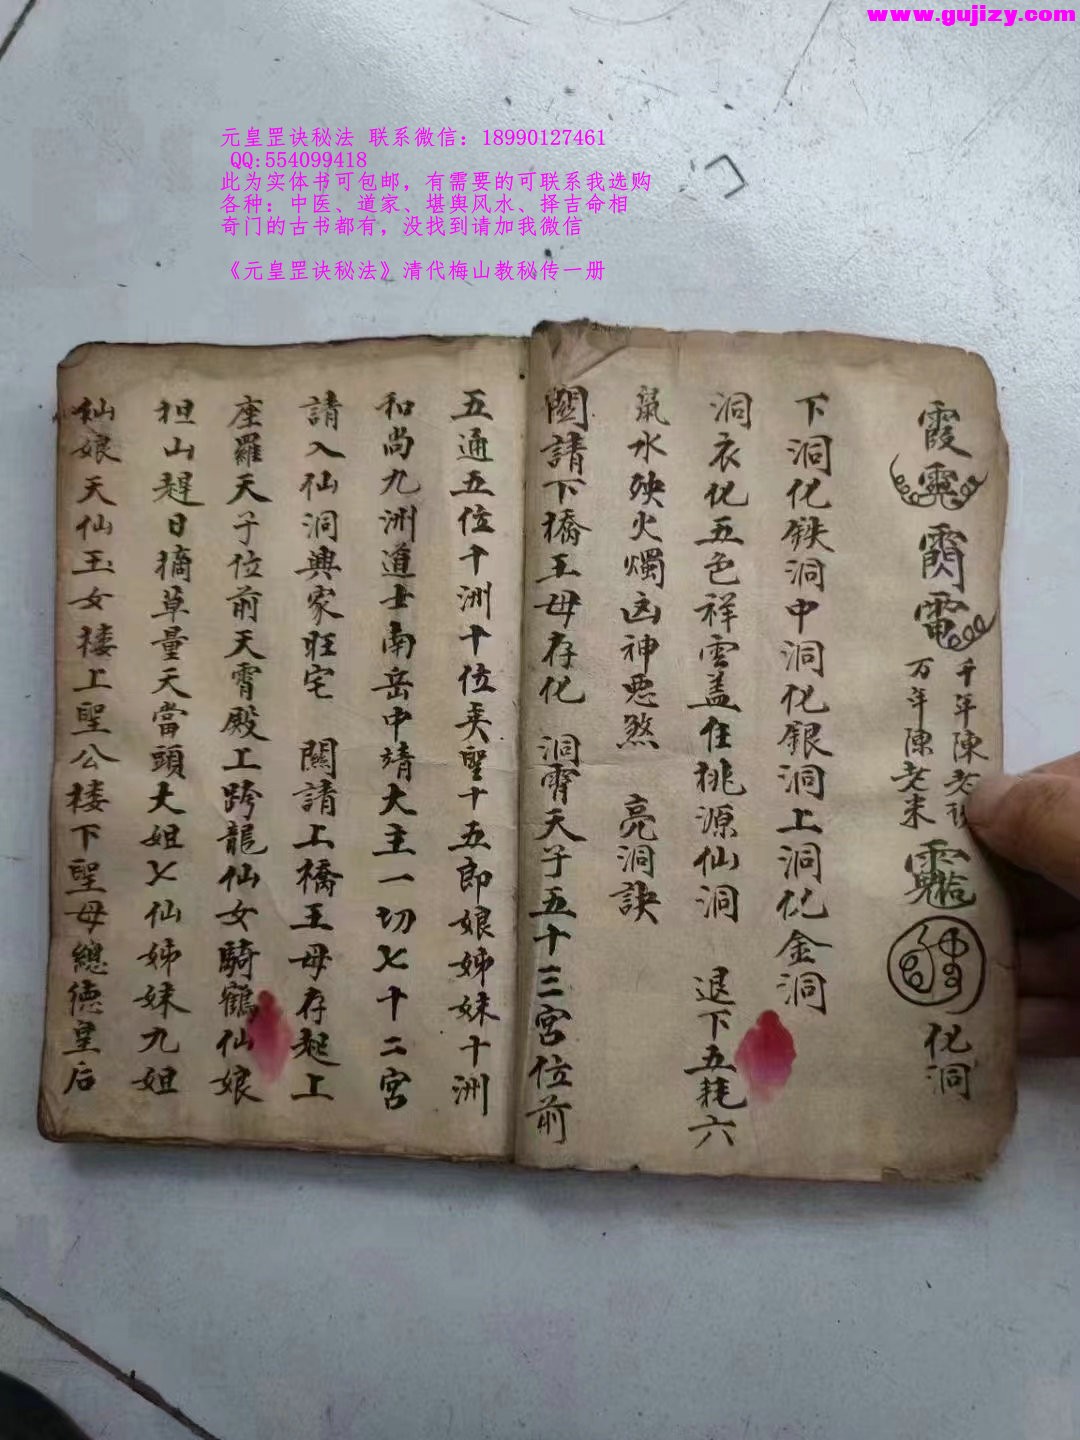 www.gujizy.com
元皇罡诀秘法 联系微信：18990127461
QQ:554099418
此为实体书可包邮，有需要的可联系我选购
各种：中医、道家、堪舆风水、择吉命相
奇门的古书都有，没找到请加我微信
《元皇罡诀秘法》清代梅山教秘传一册
霞 閃電
千年陳老
万年陳老米
化洞
下洞化铁洞中洞化银洞上洞化金洞
洞衣化五色祥雲盖住桃源仙洞 退下五耗六
鼠水殃火燭凶神恶煞 亮洞訣
關請下橋王母存化 洞霄天子五十三宮位前
五通五位十洲十位聖十五郎娘姊妹十洲
和尚九洲道士南岳中靖大主一切七十二宮
請入仙洞興家旺宅 關請上橋王母存起上
座羅天子位前天霄殿上跨龍仙女騎鶴仙娘
担山趕日摘草量天當頭大姐七仙姊妹九姐
仙娘天仙玉女楼上聖公楼下聖母總德皇后